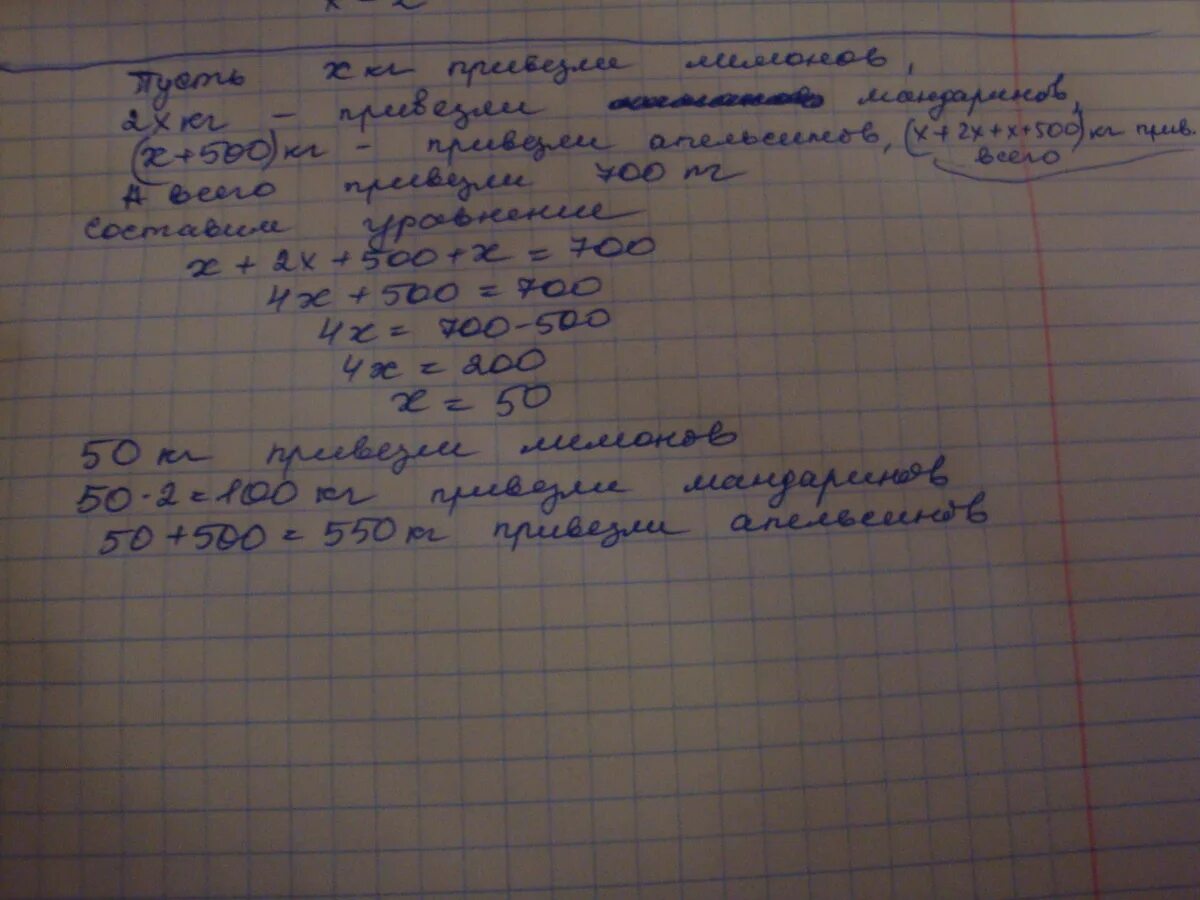 Пусть х кг привезли лимонов,
2х кг – привезли мандаринов,
(х+500) кг – привезли апельсинов, (х+2х+х+500) кг прив.
всего
А всего привезли 700 кг
Составим уравнение
х + 2х + 500 + х = 700
4х + 500 = 700
4х = 700-500
4х = 200
х = 50
50 кг привезли лимонов
50·2=100 кг привезли мандаринов
50+500=550 кг привезли апельсинов